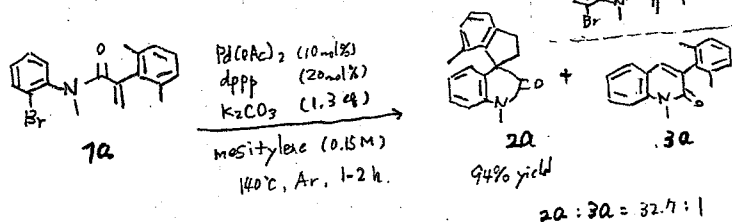 Br
O
N
Br
1a
Pd(OAc)2 (10mol%)
dppp (20mol%)
K2CO3 (1.3 eq)
mesitylene (0.15M)
140°C, Ar, 1-2 h.
N
O
2a
94% yield
+
N
O
3a
2a : 3a = 32.7 : 1